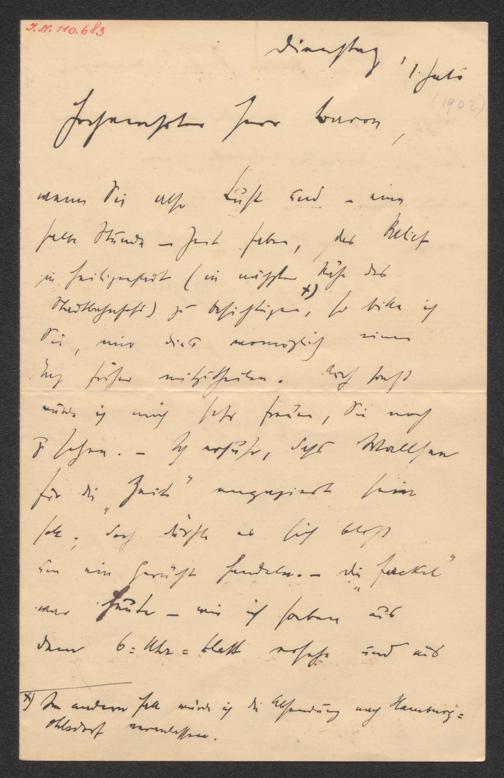 I.N. 110.683
Dienstag, 1. Juli
(1902)
Hochverehrter Herr Baron,
wenn Sie also Lust und – eine
halbe Stunde – Zeit haben, das Relief
in Heiligenstadt (in nächster Nähe des
Stadtbahnhofs) zu besichtigen, *) so bitte ich
Sie, mir dies womöglich einen
Tag früher mitzutheilen. Auch sonst
würde ich mich sehr freuen, Sie noch
zu sehen. – Ich erfuhr, dass Wallsee
für die „Zeit“ engagiert sein
soll. Doch dürfte es sich bloß
um ein Gerücht handeln. – Die „Fackel“
war heute – wie ich soeben aus
dem 6=Uhr=blatt ersehe und aus
*) Im andern Falle würde ich die Absendung nach Hamburg=
Ohlsdorf veranlassen.